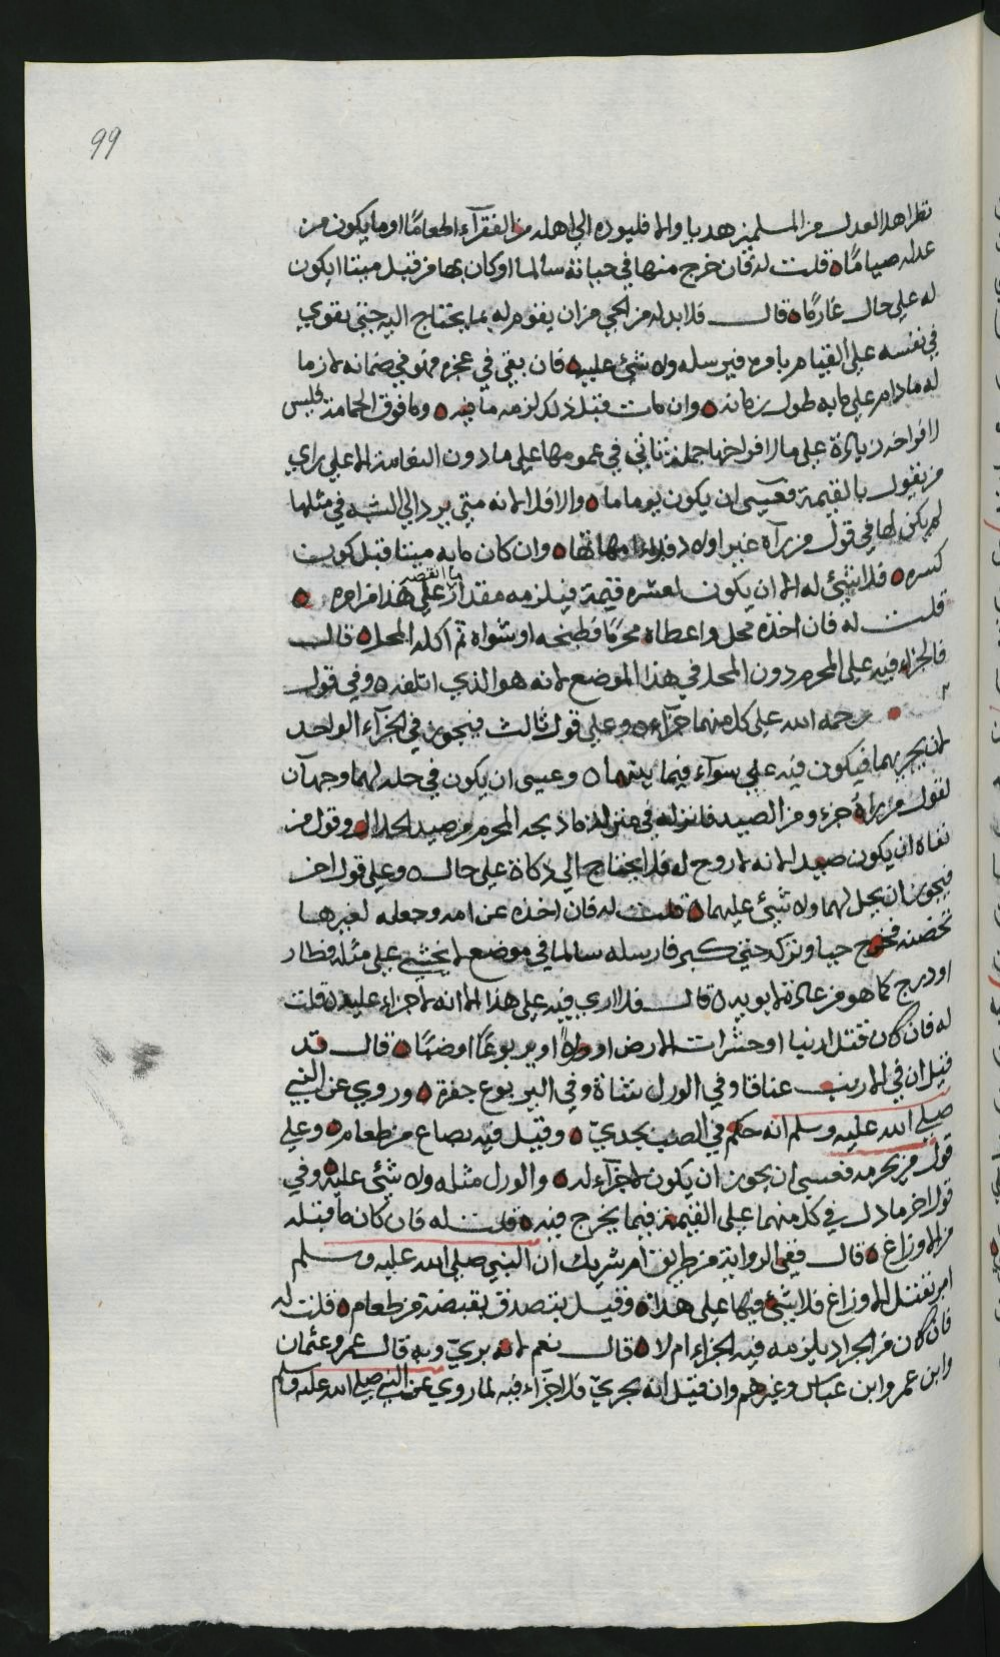 99
نظر اهل العدل من المسلمين هديا والا فليوده الى اهله من الفقرآء اطعامًا او ما يكون من
عدله صيامًا ه قلت له فان خرج منها في حياته سالما او كان بها من قبل ميتا ايكون
له على حال غارمًا ه قال فلا بد له من الحي من ان يقوم له بما يحتاج اليه حتى يقوى
في نفسه على القيام بامره فيرسله ولا شيء عليه ه فان بقي في عجزه فهو في ضمانه لازما
له ما دام على ما به طول زمانه ه وان مات قبل ذلك لزمه ما فيه ه وما فوق الحمامة فليس
لافراخه زيادة على ما لافراخها جملة ناتي في عمومها على ما دون النعامة الا على راي
من يقول بالقيمة فعسى ان يكون يوما ما ه والا فلا لانه متى يرد الى الشبه في مثلها
لم يكن لها في قول من رآه غير اولاد امهاتها ه وان كان ما به ميتا قبل كون
كسره ه فلا شيء له الا ان يكون لعشره قيمة فيلزمه مقدار ما انقصه على هذا من امره ه
قلت له فان اخذه محل واعطاه محرمًا فطبخه او شواه ثم اكله المحل ه قال
فالجزاء فيه على المحرم دون المحل في هذا الموضع لانه هو الذي اتلفه ه وفي قول
رحمه الله على كل منهما جزآء ه وعلى قول ثالث فيجوز في الجزآء الواحد
لان يجزيهما فيكون فيه على سوآء فيما بينهما ه وعسى ان يكون في حله لهما وجهان
لقول من يراه جزء من الصيد فانزله في منزلة ما ذبحه المحرم من صيد الحلال ه وقول من
نفاه ان يكون صيدا لانه لا روح له فلا يحتاج الى ذكاة على حال ه وعلى قول اخر
فيجوز ان يحل لهما ولا شيء عليهما ه قلت له فان اخذه عن امه وجعله لغيرها
تحضنه فخرج حيا وتركه حتى كبر فارسله سالما في موضع لا يخشى على مثله فطار
او درج كما هو من عادة ابويه ه قال فلا ارى فيه على هذا الا انه لا جزاء عليه ه قلت
له فان كان قتل ارنبا او حشرات الارض او ورلاً او يربوعًا او ضبًا ه قال قد
قيل ان في الارنب عناقا وفي الورل شاة وفي اليربوع جفرة ه وروي عن النبي
صلى الله عليه وسلم انه حكم في الضب بجدي ه وقيل فيه بصاع من طعام ه وعلى
قول من يحرمه فعسى ان يجوز ان يكون لا جزآء له ه والورل مثله ولا شيء عليه ه وفي
قول اخر ما دل في كل منهما على القيمة فيما يخرج فيه ه قلت له فان كان ما قتله
من الاوزاغ ه قال ففي الرواية من طريق ام شريك ان النبي صلى الله عليه وسلم
امر بقتل الاوزاغ فلا شيء فيها على هذا ه وقيل يتصدق بقبضة من طعام ه قلت له
فان كان من الجراد يلزمه فيه الجزاء ام لا ه قال نعم لانه بري وبه قال عمر وعثمان
وابن عمر وابن عباس وغيرهم وان قيل انه بحري فلا جزآء فيه لما روي عن النبي صلى الله عليه وسلم